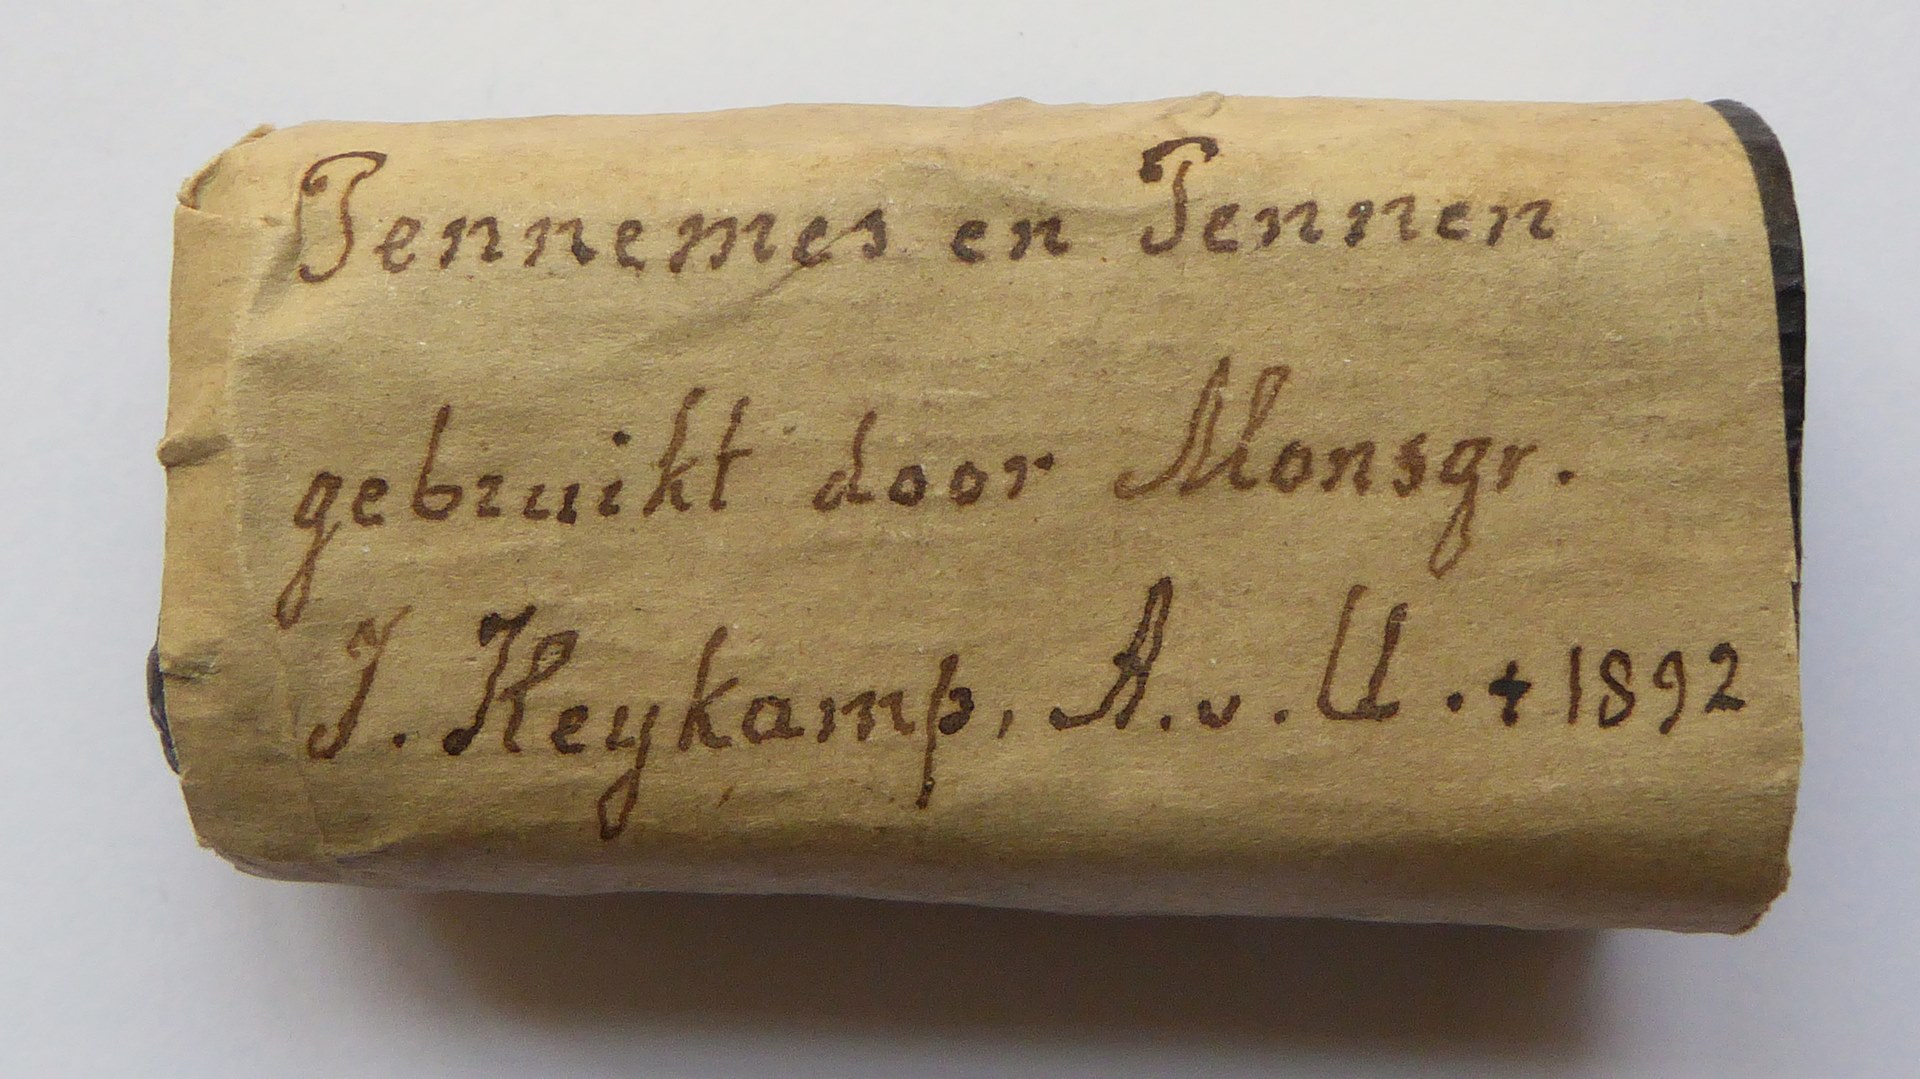 Pennemes en Pennen
gebruikt door Monsgr.
J. Heykamp, A. v. U. + 1892